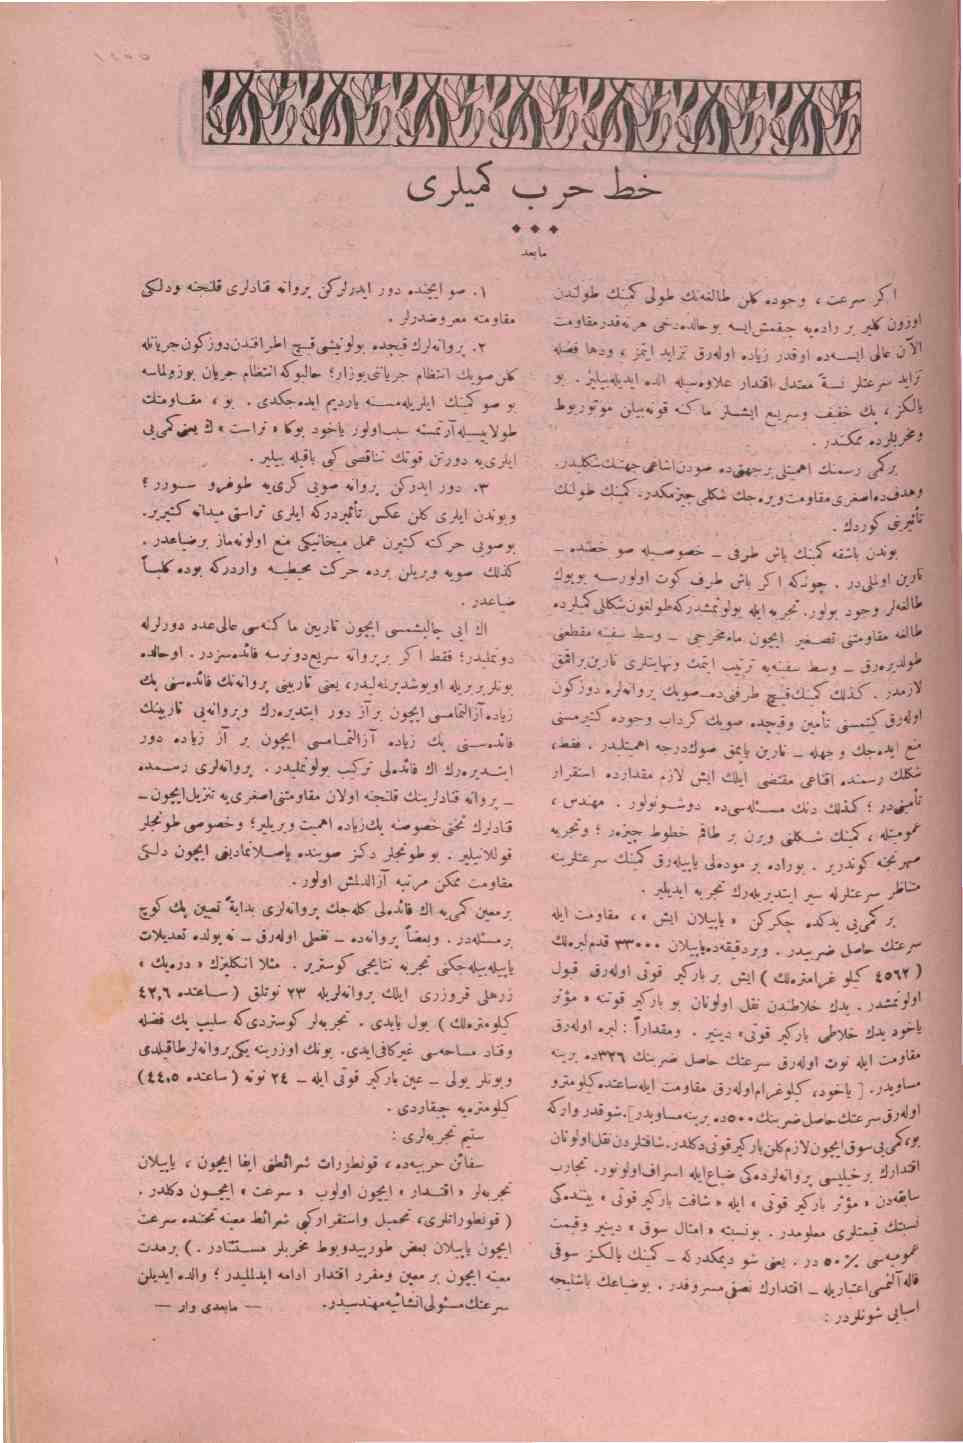 خط حرب كمیلری
مابعد
اكر سرعت ، وجوده كلن طالغه‌نك طولی كمینك طولندن
اوزون كلیر بر راده‌یه چیقمش ایسه بو حالده دخی هر نه قدر مقاومت
الآن عالی ایسه‌ده اوقدر زیاده اوله‌رق تزاید ایتمز ، ودها فضله
تزاید سرعتلر نسبةً معتدل اقتدار علاوه‌سیله الده ایدیله‌بیلیر . بو
یالكز ، پك خفیف وسریع ایشلر ماكنه قونه‌بیلن موتوربوط
ومخربلرده ممكندر .
بر كمی رسمنك اهمیتلی بر جهتی‌ده صودن اشاغی جهتنك شكلیدر.
وهدف‌ده اصغری مقاومت ویره‌جك شكلی چیزمكدر. كمینك طولنك
تأثیرینی كوردك .
بوندن باشقه كمینك باش طرفی ــ خصوصیله صو خطنده ــ
نارین اولملی‌در . چونكه اكر باش طرف كوت اولورسه بویوك
طالغه‌لر وجود بولور. تجربه ایله بولونمشدركه طولغون شكللی كمیلرده
طالغه مقاومتنی تصغیر ایچون ماه‌مخرجی ــ وسط سفنه مقطعنی
طولدیره‌رق ــ وسط سفنه‌یه ترتیب ایتمك ونهایتلری نارین براقمق
لازمدر . كذلك كمینك قیچ طرفی‌ده ــ صویك پروانه‌لره دوزكون
اوله‌رق كیتمسنی تأمین وقیچده صویك كرداب وجوده كتیرمسنی
منع ایده‌جك وجهله ــ نارین یاپمق صوك درجه اهمیتلیدر . فقط،
شكلك رسمنده اقناعی مقتضی ایلك ایش لازم مقدارده استقرار
تأمینی‌در ؛ كذلك دنك مسئله‌سی‌ده دوشونولور . مهندس ،
عمومیتله ، كمینك شكلنی ویرن بر طاقم خطوط چیزر ؛ وتجربه
صهرنجنه كوندریر . بوراده بر موده‌لی یاپیله‌رق كمینك سرعتلرینه
متناظر سرعتلرله سیر ایتدیریله‌رك تجربه ایدیلیر .
بر كمی‌یی یدكده چكركن « یاپیلان ایش » ، مقاومت ایله
سرعتك حاصل ضربیدر . وبر دقیقه‌ده یاپیلان ٣٣٠٠٠ قدم لبره‌لك
( ٤٥٦٢ كیلو غرامتره‌لك ) ایش بر باركیر قوتی اوله‌رق قبول
اولونمشدر . یدك خلاطندن نقل اولونان بو باركیر قوتنه « مؤثر
یاخود یدك خلاطی باركیر قوتی» دینیر . ومقداراً : لبره اوله‌رق
مقاومت ایله نوت اوله‌رق سرعتك حاصل ضربنك ٣٢٦ده برینه
مساویدر. [ یاخود، كیلوغرام اوله‌رق مقاومت ایله ساعتده كیلومترو
اوله‌رق سرعتك حاصل ضربنك ٥٠٠ده برینه مساویدر]. شو قدر واركه
بو، كمی‌یی سوق ایچون لازم كلن باركیر قوتی دكلدر. شافتلردن نقل اولونان
اقتدارك بر خیلیسی پروانه‌لرده‌كی ضیاع ایله اسراف اولونور. تجارب
سابقه‌دن « مؤثر باركیر قوتی » ایله « شافت باركیر قوتی » بیننده‌كی
نسبتك قیمتلری معلومدر . بو نسبته « امثال سوق » دینیر وقیمت
عمومیه‌سی ٪ ٥٠ در . یعنی شو دیمكدركه ــ كمینك یالكز سوقی
قاله آلنمسی اعتباریله ــ اقتدارك نصفی مسروفدر . بو ضیاعك باشلیجه
اسبابی شونلردر :
١. صو ایچنده دور ایدرلركن پروانه قنادلری قلنجنه ودلكی
مقاومته معروضدرلر .
٢. پروانه‌لرك قیچده بولونیشی قیچ اطرافندن دوزكون جریانله
كلن صویك انتظام جریاننی بوزار؛ حالبوكه انتظام جریان بوزولماسه
بو صو كمینك ایلریله‌مسنه یاردیم ایده‌جكدی . بو ، مقاومتك
طولاییسیله آرتمسنه سبب اولور یاخود بوكا « تراست » ك یعنی كمی‌یی
ایلری‌یه دورتن قوتك تناقصی كبی باقیله بیلیر .
٣. دور ایدركن پروانه صویی كری‌یه طوغرو سورر ؛
وبوندن ایلری كلن عكس تأثیردركه ایلری تراستی میدانه كتیریر.
بو صویی حركته كتیرن عمل میخانیكی منع اولونه‌ماز بر ضیاعدر .
كذلك صویه ویریلن برده حركت محیطیه واردركه بوده كلیاً
ضیاعدر .
اك ایی چالیشمسی ایچون تاربین ماكنه‌سی عالی عدد دورلرله
دونملیدر؛ فقط اكر بر پروانه سریع دونرسه فائده‌سزدر. اوحالده
بونلر بربریله اویوشدیریلملیدر، یعنی تاربینی پروانه‌نك فائده‌سنی پك
زیاده آزالتمامسی ایچون بر آز دور ایتدیره‌رك وپروانه‌یی تاربینك
فائده‌سنی پك زیاده آزالتمامسی ایچون بر آز زیاده دور
ایتدیره‌رك اك فائده‌لی تركیب بولونملیدر . پروانه‌لری رسمده
ــ پروانه قنادلرینك قلنجنه اولان مقاومتنی اصغری‌یه تنزیل ایچون ــ
قنادلرك تختی خصوصنه پك زیاده اهمیت ویریلیر؛ وخصوصی طونجلر
قوللانیلیر . بو طونجلر دكز صوینده پاصلانمادیغی ایچون دلكی
مقاومت ممكن مرتبه آزالدلمش اولور .
بر معین كمی‌یه اك فائده‌لی كله‌جك پروانه‌لری بدایةً تعیین پك كوچ
بر مسئله‌در . وبعضاً پروانه‌ده ــ نفعلی اوله‌رق ــ نه یولده تعدیلات
یاپیله‌بیله‌جكنی تجربه نتایجی كوستریر . مثلا انكلیزك « دره‌یك »
زرهلی قروزری ایلك پروانه‌لریله ٢٣ نوتلق ( ساعتده ٤٢٫٦
كیلومتره‌لك ) یول یاپدی . تجربه‌لر كوستردی‌كه سلیپ پك فضله
وقناد مساحه‌سی غیركافی ایدی. بونك اوزرینه یكی پروانه‌لر طاقیلدی
وبونلر یولی ــ عین باركیر قوتی ایله ــ ٢٤ نوته ( ساعتده ٤٤٫٥)
كیلومتره‌یه چیقاردی .
ستیم تجربه‌لری :
سفائن حربیه‌ده ، قونطورات شرائطنی ایفا ایچون ، یاپیلان
تجربه‌لر « اقتدار » ایچون اولوب « سرعت » ایچون دكلدر .
( قونطوراتلری، تحمیل واستقرار كبی شرائط معینه تحتنده سرعت
ایچون یاپیلان بعض طورپیدوبوط مخربلر مستثنادر . ) بر مدت
معینه ایچون بر معین ومقرر اقتدار ادامه ایدلملیدر ؛ والده ایدیلن
سرعتك مسئولی انشائیه مهندسیدر.
— مابعدی وار —